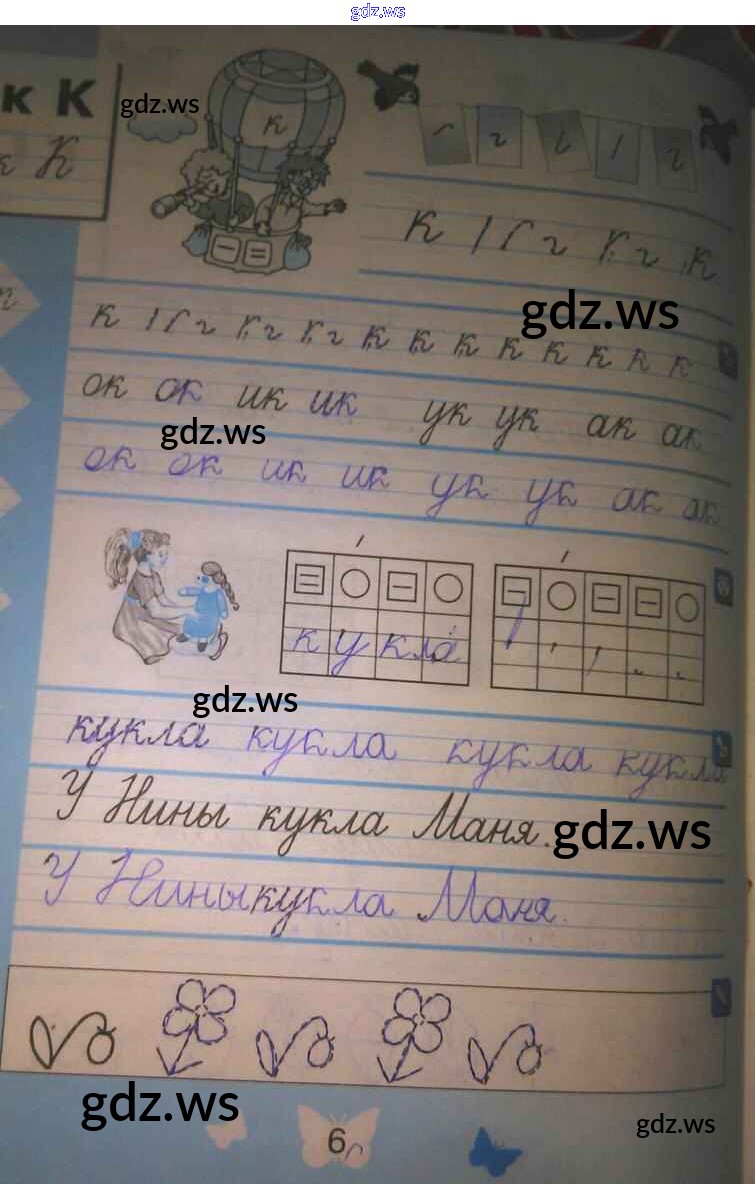 gdz.ws
к К
gdz.ws
к
К
к
к
gdz.ws
к к к к к к к к к
ок ок ик ик ук ук ак ак
gdz.ws
ок ок ик ик ук ук ак ак
кукла
gdz.ws
кукла кукла кукла кукла
У Нины кукла Маня.
gdz.ws
У Нины кукла Маня.
gdz.ws
6
gdz.ws